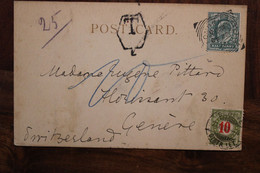 25
T
POSTCARD.
Madame Eugène Pittard
Florissant 30.
10
Genève
Switzerland